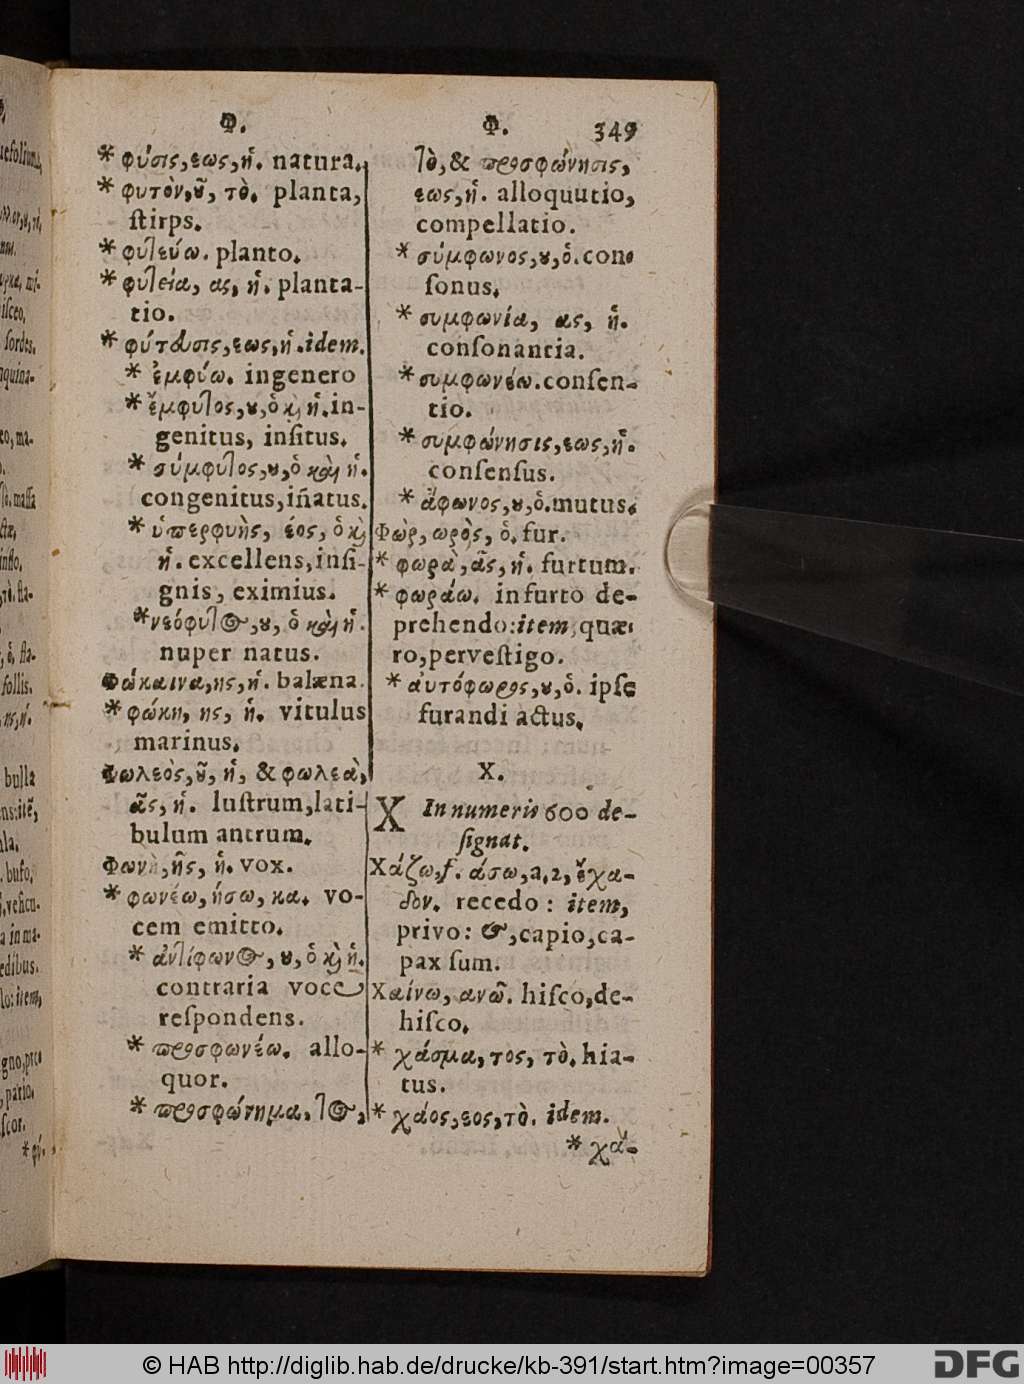 Φ.
* φύσις, εως, ἡ. natura.
* φυτὸν, ȣ͂, τὸ. planta,
ſtirps.
* φυτεύω. planto.
* φυτεία, ας, ἡ. planta-
tio.
* φύτευσις, εως, ἡ. idem.
* ἐμφύω. ingenero
* ἔμφυτος, ȣ, ὁ κὶ ἡ. in-
genitus, inſitus.
* σύμφυτος, ȣ, ὁ καὶ ἡ.
congenitus, iñatus.
* ὑπερφυὴς, έος, ὁ κὶ
ἡ. excellens, inſi-
gnis, eximius.
* νεόφυτος, ȣ, ὁ καὶ ἡ.
nuper natus.
Φώκαινα, ης, ἡ. balæna.
* φώκη, ης, ἡ. vitulus
marinus.
Φωλεὸς, ȣ͂, ἡ, & φωλεὰ,
ᾶς, ἡ. luſtrum, lati-
bulum antrum.
Φωνὴ, ῆς, ἡ. vox.
* φωνέω, ήσω, κα. vo-
cem emitto.
* ἀντίφωνος, ȣ, ὁ κὶ ἡ.
contraria voce
reſpondens.
* προσφωνέω. allo-
quor.
* προσφώνημα, τος,
Φ. 349
τὸ, & προσφώνησις,
εως, ἡ. alloquutio,
compellatio.
* σύμφωνος, ȣ, ὁ. con-
ſonus.
* συμφωνία, ας, ἡ.
conſonantia.
* συμφωνέω. conſen-
tio.
* συμφώνησις, εως, ἡ.
conſenſus.
* ἄφωνος, ȣ, ὁ. mutus.
Φὼρ, ωρὸς, ὁ. fur.
* φωρὰ, ᾶς, ἡ. furtum.
* φωράω. in furto de-
prehendo: item, quæ-
ro, perveſtigo.
* αὐτόφωρος, ȣ, ὁ. ipſe
furandi actus.
X.
X In numeris 600 de-
ſignat.
Χάζω, f. άσω, a. 2, ἔχα-
δον. recedo: item,
privo: &, capio, ca-
pax ſum.
Χαίνω, ανῶ. hiſco, de-
hiſco.
* χάσμα, τος, τὸ. hia-
tus.
* χάος, εος, τὸ. idem.
* χά-
© HAB http://diglib.hab.de/drucke/kb-391/start.htm?image=00357
DFG